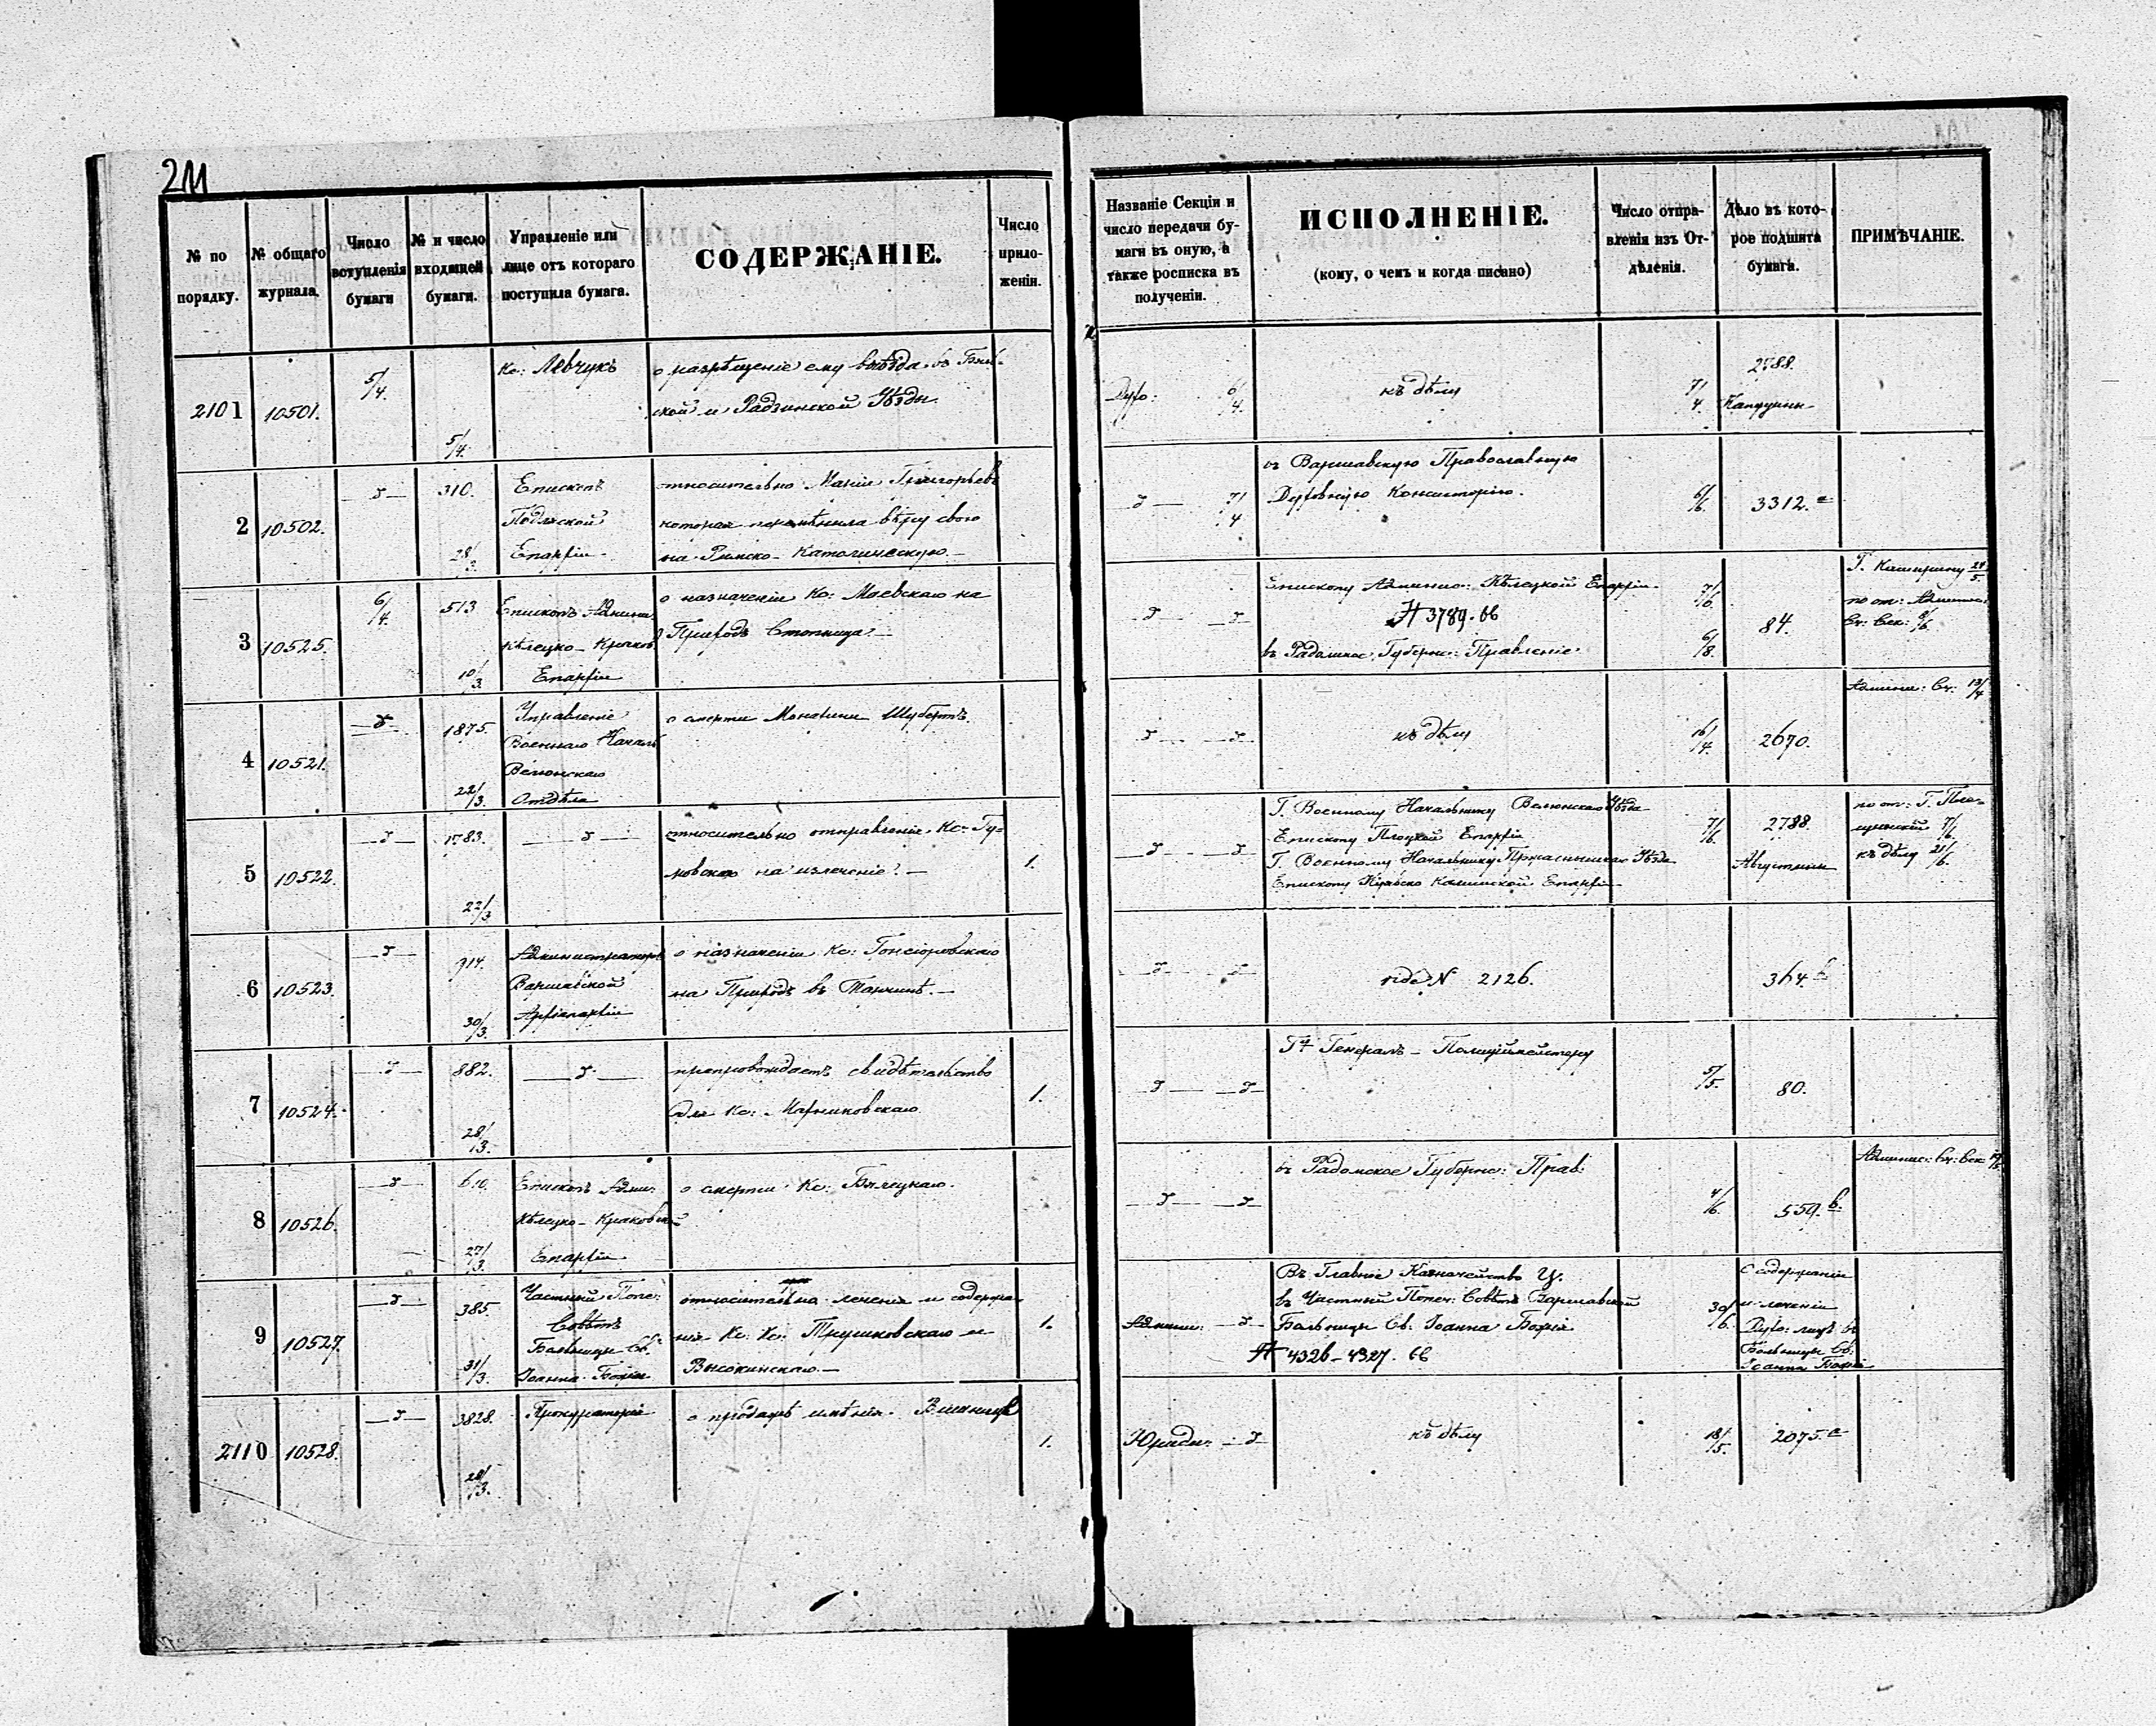 211
№ по порядку.
№ общаго журнала.
Число вступленія бумаги
№ и число входящей бумаги.
Управленіе или лице отъ котораго поступила бумага.
СОДЕРЖАНІЕ.
Число приложеній.
Названіе Секціи и число передачи бумаги въ оную, а также росписка въ полученіи.
ИСПОЛНЕНІЕ.
(кому, о чемъ и когда писано)
Число отправленія изъ Отдѣленія.
Дѣло въ которое подшита бумага.
ПРИМѢЧАНІЕ.
2101 10501. 5/4. 5/4.
Кс: Левчукъ
о разрѣшеніе ему въѣзда въ
ской и Радзинской Уѣзды
Дух: 6/4.
къ дѣлу
7/4.
2788.
2 10502. 310. 28/3
Епископъ
Подляской
Епархіи
относительно Маріи Григорьевъ
которая перемѣнила вѣру свою
на Римско-Католическую.—
7/4
въ Варшавскую Православную
Духовную Консисторію.
6/6.
3312.
3 10525. 6/4. 513 10/3.
Епископъ Админи.
Кѣлецко-Краков.
Епархіи
о назначеніи Кс: Маевскаго на
Приходъ Стопница.—
Епископу Админис: Кѣлецкой Епархіи
3789.66
въ Радомское Губернс: Правленіе
7/6.
6/8.
84.
Г. Каширину
по от: Админис:
4 10521. 1875. 22/3.
Управленіе
Военнаго Начал.
Велюнскаго
Отдѣла
о смерти Монахини Шубертъ.
къ дѣлу
16/4.
2670.
Админи: 13/4
5 10522. 1783. 22/3
относительно отправленіе Кс: Гу-
мовскаго на излеченіе.—
1.
Г. Военному Начальнику Велюнскаго Уѣзда
Епископу Плоцкой Епархіи
Г. Военному Начальнику Праснышскаго Уѣзда
Епископу Куявско Калишской Епархіи
7/6.
2788.
Августіяны
по от: Г. 7/6.
къ дѣлу 21/6.
6 10523. 914. 30/3.
Администраторъ
Варшавской
Архіепархіи
о назначеніи Кс: Гонсіоровскаго
на Приходъ въ Тарчинѣ.—
N 2126.
364.
7 10524. 882. 28/3.
препровождаетъ свидѣтельство
для Кс:
1.
Генералъ-Полиціймейстеру
5/5.
80.
8 10526. 610. 27/3.
Епископъ Адми:
Кѣлецко-Краковской
Епархіи
о смерти Кс: Бялецкаго.
въ Радомское Губернс: Прав:
4/6.
559. b.
Админис:
9 10527. 385. 31/3.
Частный Попе:
Совѣтъ
Больницы Св:
Іоанна Божія
относительно леченія и содержа-
нія Кс: Кс: Трушковскаго и
Высокинскаго.—
1.
Админи:
Въ Главное Казначейство Ц.
въ Частный Попеч: Совѣтъ Варшавской
Больницы Св: Іоанна Божія
4326–4327. 66
30/6.
О содержаніи
и леченіи
Дух: лицъ въ
Больницы Св:
Іоанна Божія
2110 10528. 3828. 28/3.
Прокураторія
о продажѣ имѣнія
1.
Юриди:
къ дѣлу
18/5.
2075.